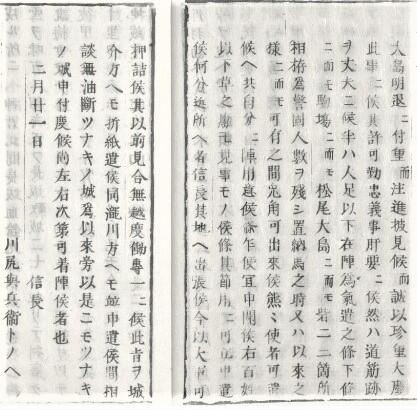 大島退ニ付重而注進披見候而誠以珍重大慶
此事ニ候其許可勤忠義事肝要ニ候然ハ道筋跡
ヲ丈大ニ候半ハ人足以下在陣為氣遣之條下條
ニ而モ駒場ニ而モ松尾大島ニ而モ砦二三箇所
相拵為警固人數ヲ残シ置納馬之時又ハ以來之
様ニ而モ可有之間兎角可出來候熊々使者可遣
候ヘ共自分ニ陣用意候條乍使宜申聞候右百姓
以下草之モ見事モノ候條其節用ニ可申遣
候何分迄所ヘ者信長其地ヘ出張候今以大可
押詰候其以前見合無越度働專一ニ候此旨ヲ城
介方ヘモ折紙遣候同瀧川方ヘモ並申遣候間相
談無油斷ツナキノ城為以來旁以是ニモツナキ
ノ城申付慶候尚左右次第可着陣候者也
二月廿一日 信長
川尻與兵衞トノヘ